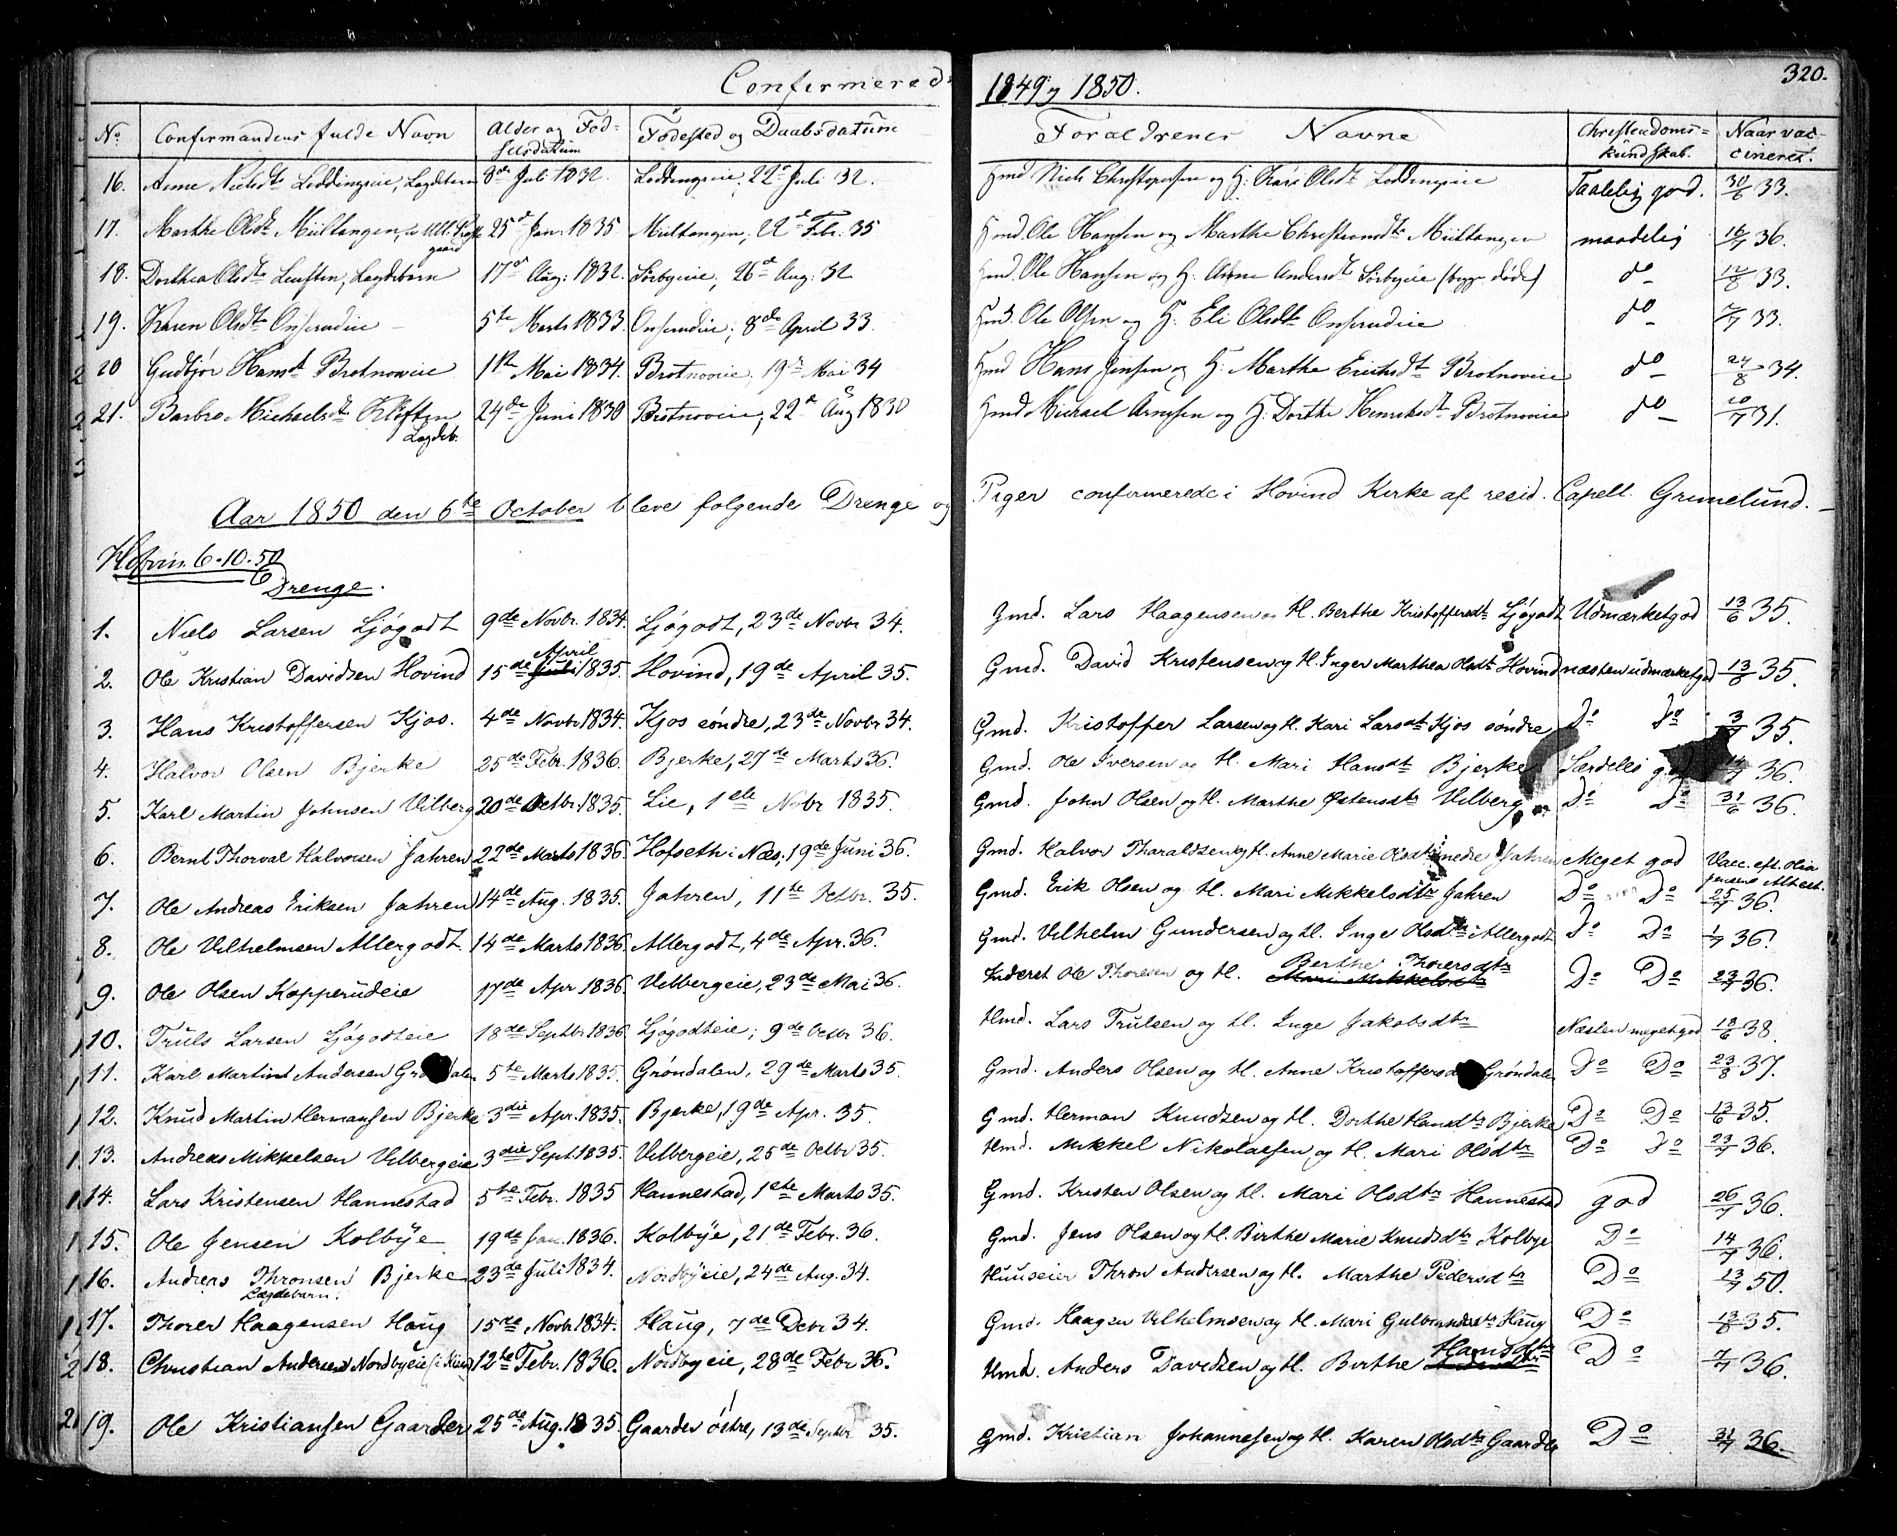 Confirmerede 1849 og 1850. 320.
No. Confirmandens fulde Navn Alder og Fødselsdatum Fødested og Daabsdatum Forældrenes Navne Christendomskundskab. Naar vaccineret.
16. Anne Nielsdtr Loddingeie, Lægdebarn 8de Juli 1832. Loddingeie, 22de Juli 32. Hmd Niels Christophersen og H: Kari Olsdtr Loddingeie Taalelig god. 30/6 33.
17. Marthe Olsdtr Miiltangen, 25de Jan: 1835 Miiltangen, 22de Febr. 35 Hmd. Ole Hansen og Marthe Miiltangen maadelig 16/7 36.
18. Dorthea Olsdtr Lægdebarn 17de Aug: 1832 Sörbyeie, 26de Aug: 32 Hmd. Ole Hansen og H. Anne Andersdtr Sörbyeie (begge døde) do 12/8 33.
19. Karen Olsdtr Onsrudeie 5te Marts 1833. Onsrudeie, 8de April 33. Hmd. Ole Olsen og H. Eli Olsdtr Onsrudeie do 33.
20 Gudbjør Hansdt Brotnoveie 1ste Mai 1834. Brotnoveie. 19de Mai 34 Hmd Hans Jensen og H. Marthe Erichsdtr Brotnoveie do 24/8 34.
21. Barbro Michaelsdtr Kløften Lægdeb. 24de Juni 1830 Brotnoveie, 22de Aug 1830 Hmd Michael Arnesen og H: Dorthe Henriksdtr Brotnoveie do 10/7 31.
Aar 1850 den 6te October bleve følgende Drenge og Piger confirmerede i Hovind Kirke af resid. Capell. Grimelund.
Hofvin 6-10-50
Drenge.
1. Niels Larsen Ljøgodt 9de Novbr. 1834. Ljøgodt, 23de Novbr 34. Gmd. Lars Haagensen og H. Berthe Kristoffersdtr Ljøgodt Udmærket god 13/6 35.
2. Ole Kristian Davidsen Hovind 15de Juli April 1835. Hovind, 19de April 35. Gmd. David Kristensen og H. Inger Marthea Olsdtr Hovind næsten udmærket god 13/6 35.
3. Hans Kristoffersen Kjos. 4de Novbr 1834. Kjos søndre, 23de Novbr 34. Gmd. Kristoffer Larsen og H. Kari Larsdt Kjos søndre Do Do 3/7 35.
4. Halvor Olsen Bjerke 25de Febr. 1836. Bjerke, 27de Marts 36. Gmd. Ole Iversen og H. Mari Hansdtr Bjerke Særdeles god 36.
5. Karl Martin Johnsen Vilberg 20de Octbr. 1835. Lie, 1ste Nobr 1835. Gmd. John Olsen og H. Marthe Østensdtr Vilberg Do Do 31/6 36.
6. Bernt Thorval Halvorsen Jahren 22de Marts 1836. Hofseth i Næs, 19de Juni 36. Gmd. Halvor Tharaldsen og H. Anne Marie Olsdtr nedre Jahren Meget god Vacc. eft. Olia Jensens Attest.
7. Ole Andreas Eriksen Jahren 14de Aug. 1835. Jahren, 11te Octbr. 35. Gmd. Erik Olsen og H. Mari Mikkelsdtr Jahren Do Do 25/7 36.
8. Ole Vilhelmsen Allergodt 14de Marts 1836. Allergodt, 4de Apr. 36. Gmd. Vilhelm Gundersen og H. Inge Olsdtr Allergodt Do Do 1/7 36.
9. Ole Olsen Kopperudeie 17de Apr 1836. Vilbergeie, 23de Mai 36. Inderst Ole Thoresen og H. Mari Mikkelsdtr Berthe Thorersdtr Do Do 23/7 36.
10. Truls Larsen Ljøgodteie 18de Septbr. 1836. Ljøgodteie, 9de Octbr 36. Hmd. Lars Trulsen og H. Inge Jakobsdtr Næsten meget god 18/6 38.
11. Karl Martin Andersen Grøndalen 5te Marts 1835. Grøndalen, 29de Marts 35. Gmd. Anders Olsen og H. Anne Kristoffersd Grøndalen Do Do 23/8 37.
12. Knud Martin Hermansen Bjerke 3die Apr. 1835. Bjerke, 19de Apr. 35. Gmd. Herman Knudsen og H. Dorthe Hansdtr Bjerke Do Do 13/6 35.
13. Andreas Mikkelsen Vilbergeie 3die Sept 1835. Vilbergeie, 25de Octbr 35. Hmd. Mikkel Nikolaisen og H. Mari Olsdtr Do Do 23/7 36.
14. Lars Kristensen Hannestad 5te Febr. 1835 Hannestad, 1ste Marts 35. Gmd. Kristen Olsen og H. Mari Olsdtr Hannestad god 26/7 36.
15. Ole Jensen Kolbye 19de Jan. 1836. Kolbye, 21de Febr. 36. Gmd. Jens Olsen og H. Birthe Marie Knudsdtr Kolbye Do 14/7 36.
16. Andreas Thronsen Bjerke Lægdebarn. 23de Juli 1834. Nordbyeie, 24de Aug. 34. Huuseier Thron Andersen og H. Marthe Pedersdtr Do 13/7 50.
17. Thorer Haagensen Haug 15de Novbr 1834. Haug, 7de Decbr 34. Gmd. Haagen Vilhelmsen og H. Mari Gulbrandsdtr Haug Do 13/8 35.
18. Christian Andersen Nordbyeie 12te Febr. 1836. Nordbyeie, 28de Febr 36. Hmd. Anders Davidsen og H. Berthe Hansdtr Do 7/7 36.
19. Ole Kristiansen Gaarder 25de Aug. 1835. Gaarder østre, 13de Septbr 35. Gmd. Kristian Johannesen og H. Karen Olsdtr Gaarder Do 31/7 36.